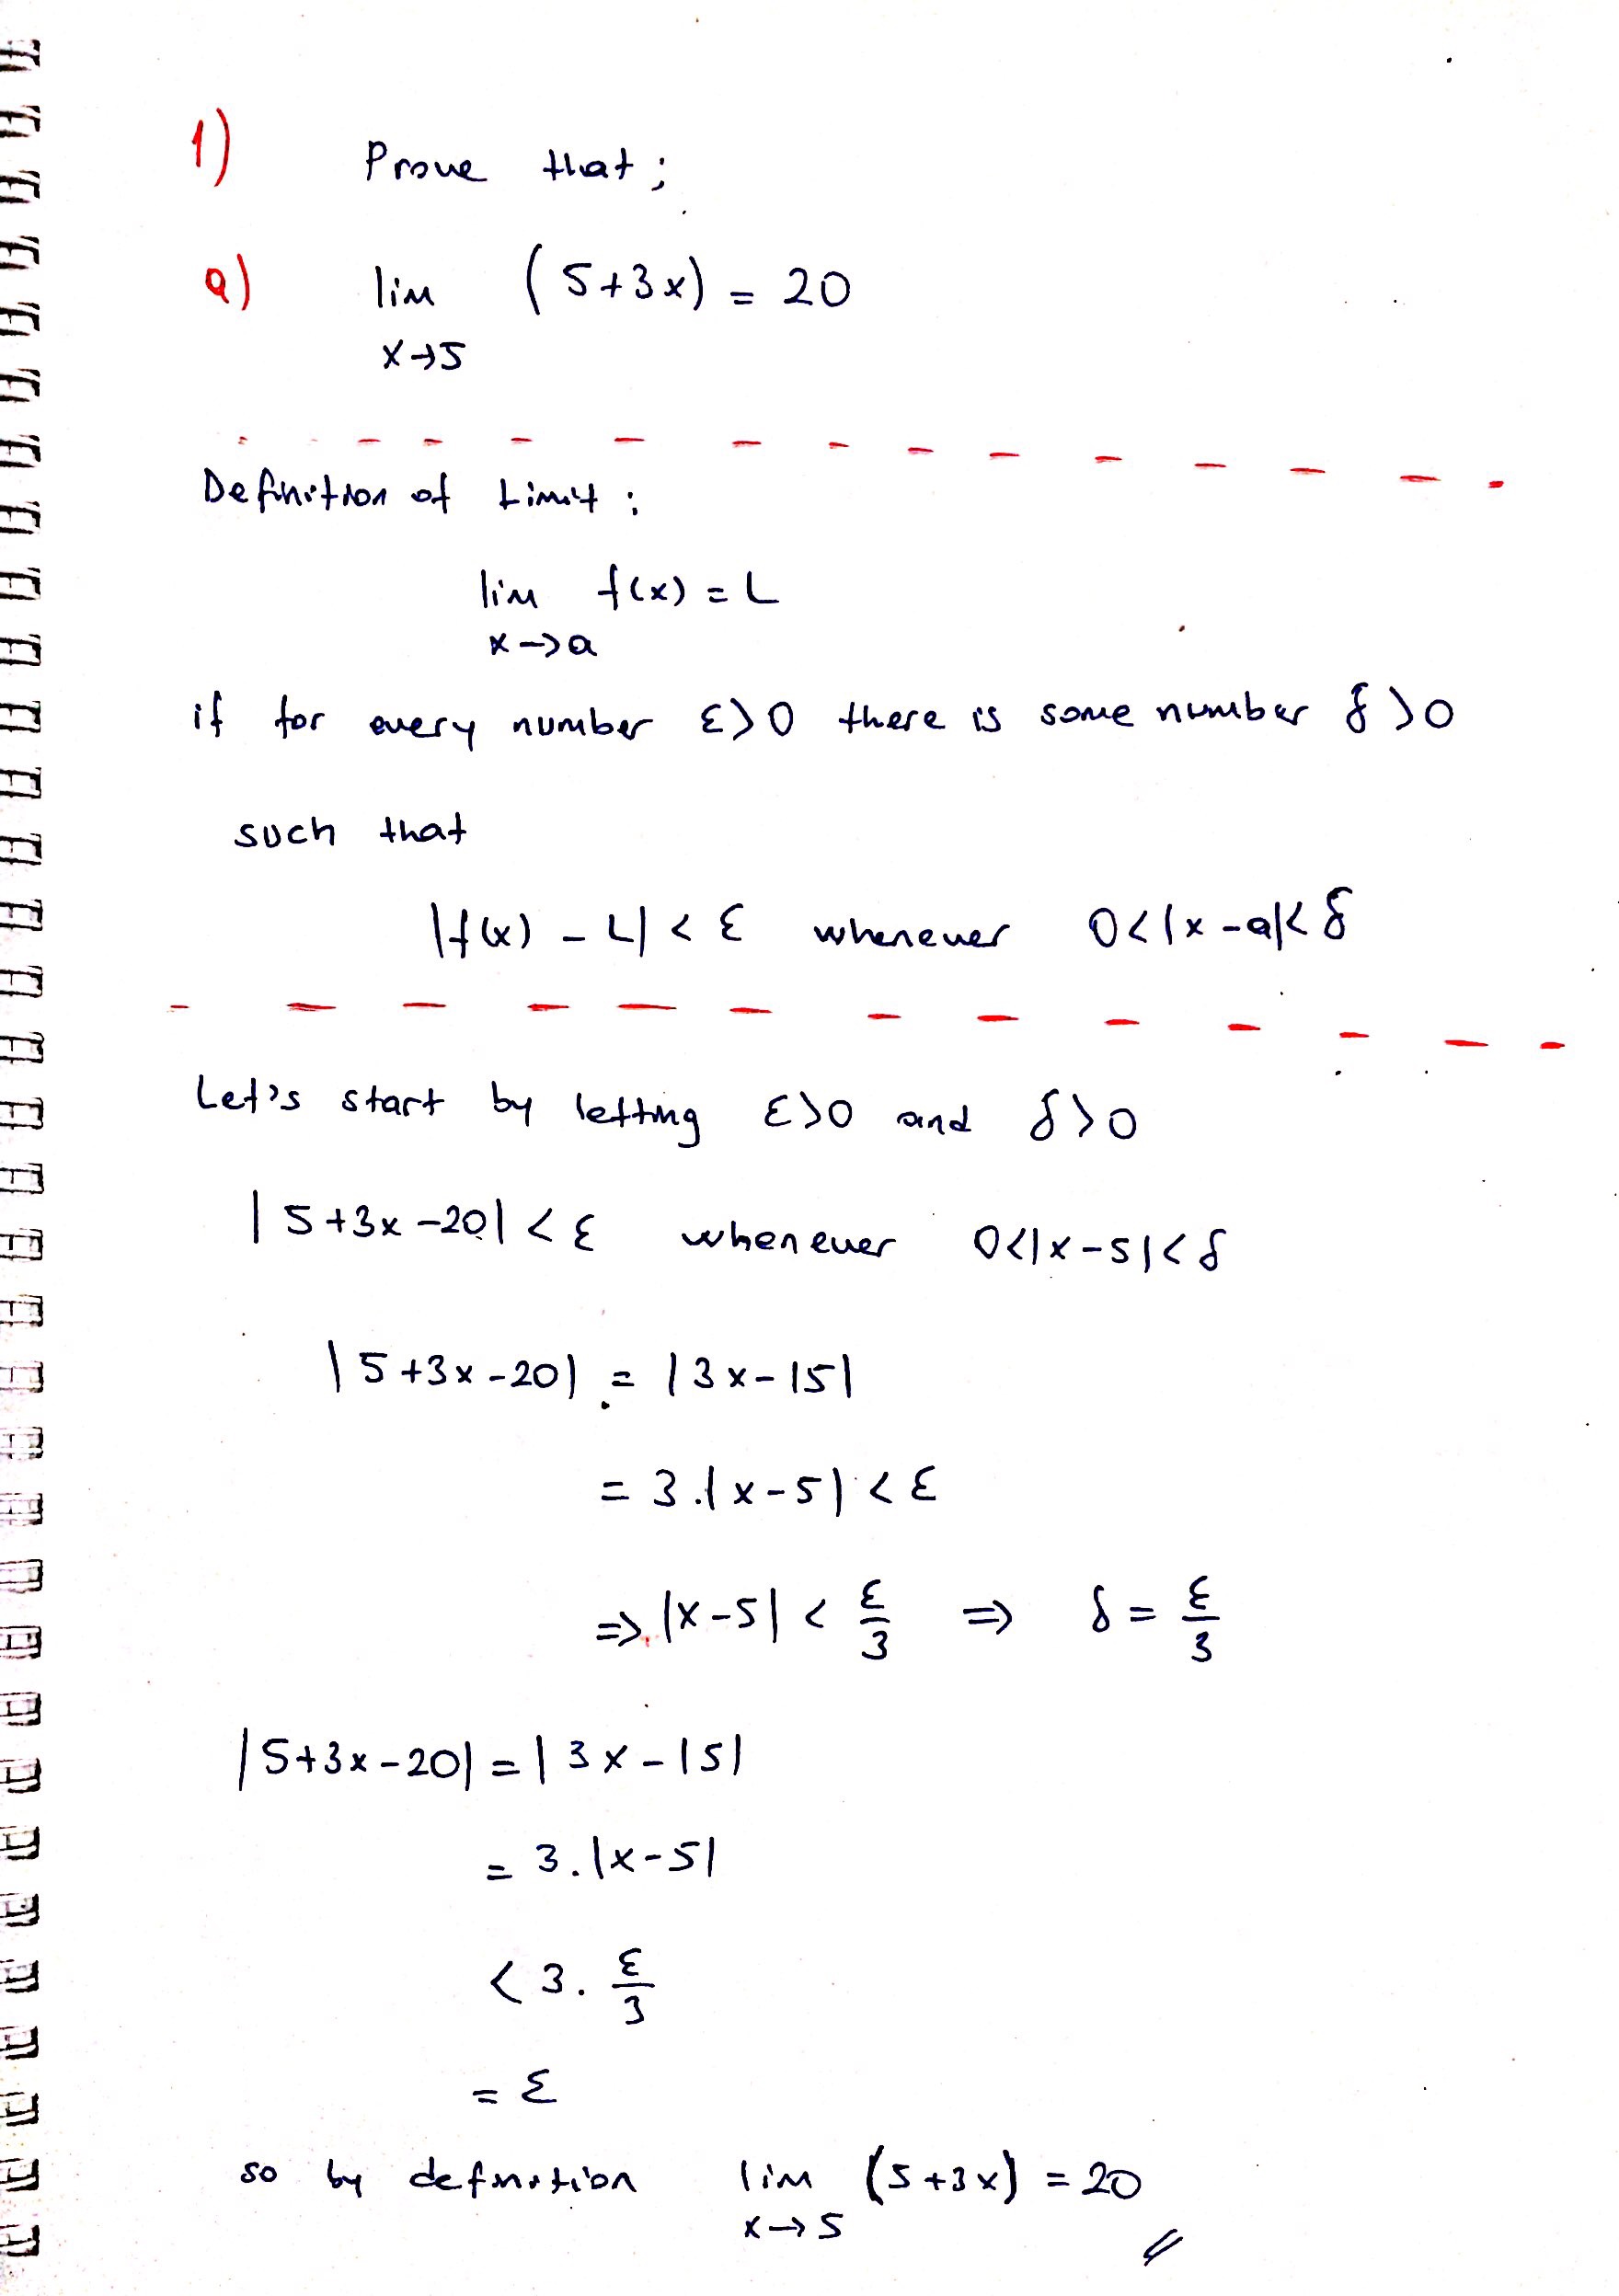 1) Prove that;
a) lim (5+3x) = 20
x→5
Definition of Limit:
lim f(x) = L
x→a
if for every number ε>0 there is some number δ>0
such that
|f(x) - L| < ε whenever 0<|x-a|<δ
Let's start by letting ε>0 and δ>0
|5+3x-20| < ε whenever 0<|x-5|<δ
|5+3x-20| = |3x-15|
= 3.|x-5| < ε
⇒ |x-5| < ε/3 ⇒ δ = ε/3
|5+3x-20| = |3x-15|
= 3.|x-5|
< 3. ε/3
= ε
so by definition lim (5+3x) = 20
x→5